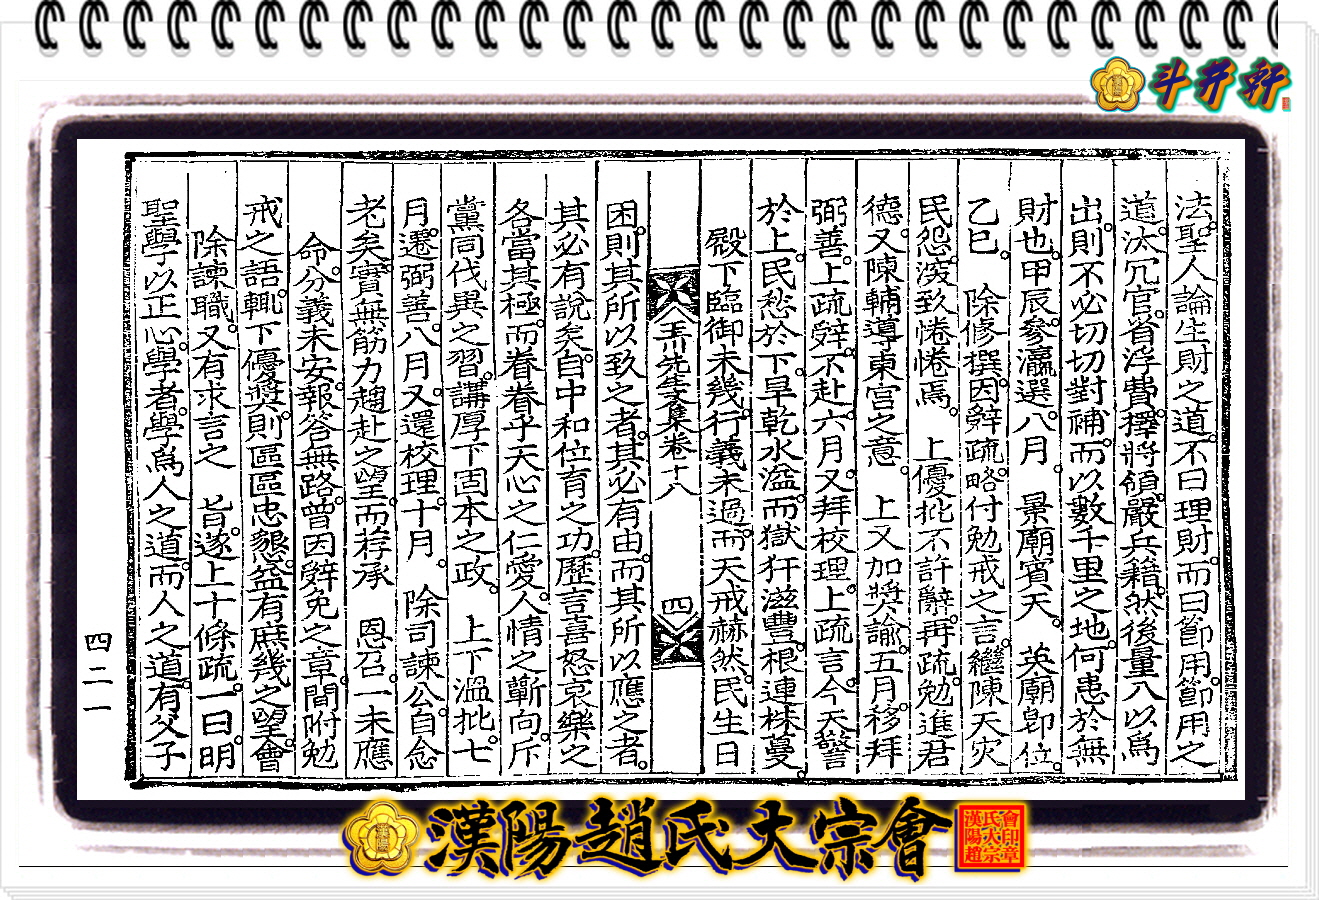 斗井軒
法聖人論生財之道不曰理財而曰節用節用之
道汰冗官省浮費擇將領嚴兵籍然後量入以爲
出則不必切切對補而以數千里之地何患於無
財也甲辰參瀛選八月 景廟賓天 英廟卽位
乙巳 除修撰因辭疏略付勉戒之言繼陳天灾
民怨浚致惓惓焉 上優批不許辭再疏勉進君
德又陳輔導東宮之意 上又加奬諭五月移拜
弼善上疏辭不赴六月又拜校理上疏言今天警
於上民愁於下旱乾水溢而獄犴滋豐根連株蔓
殿下臨御未幾行義未過而天戒赫然民生日
八弄川先生文集卷十八
四
困則其所以致之者其必有由而其所以應之者
其必有說矣自中和位育之功歷言喜怒哀樂之
各當其極而眷眷乎天心之仁愛人情之蘄向斥
黨同伐異之習講厚下固本之政 上下溫批七
月遷弼善八月又還校理十月 除司諫公自念
老矣實無筋力趨赴之望而荐承 恩召一未應
命分義未安報答無路曾因辭免之章間附勉
戒之語輒下優奬則區區忠懇益有庶幾之望會
除諫職又有求言之 旨遂上十條疏一曰明
聖學以正心學者學爲人之道而人之道有父子
四二一
漢陽趙氏大宗會
漢陽趙氏大宗會印章